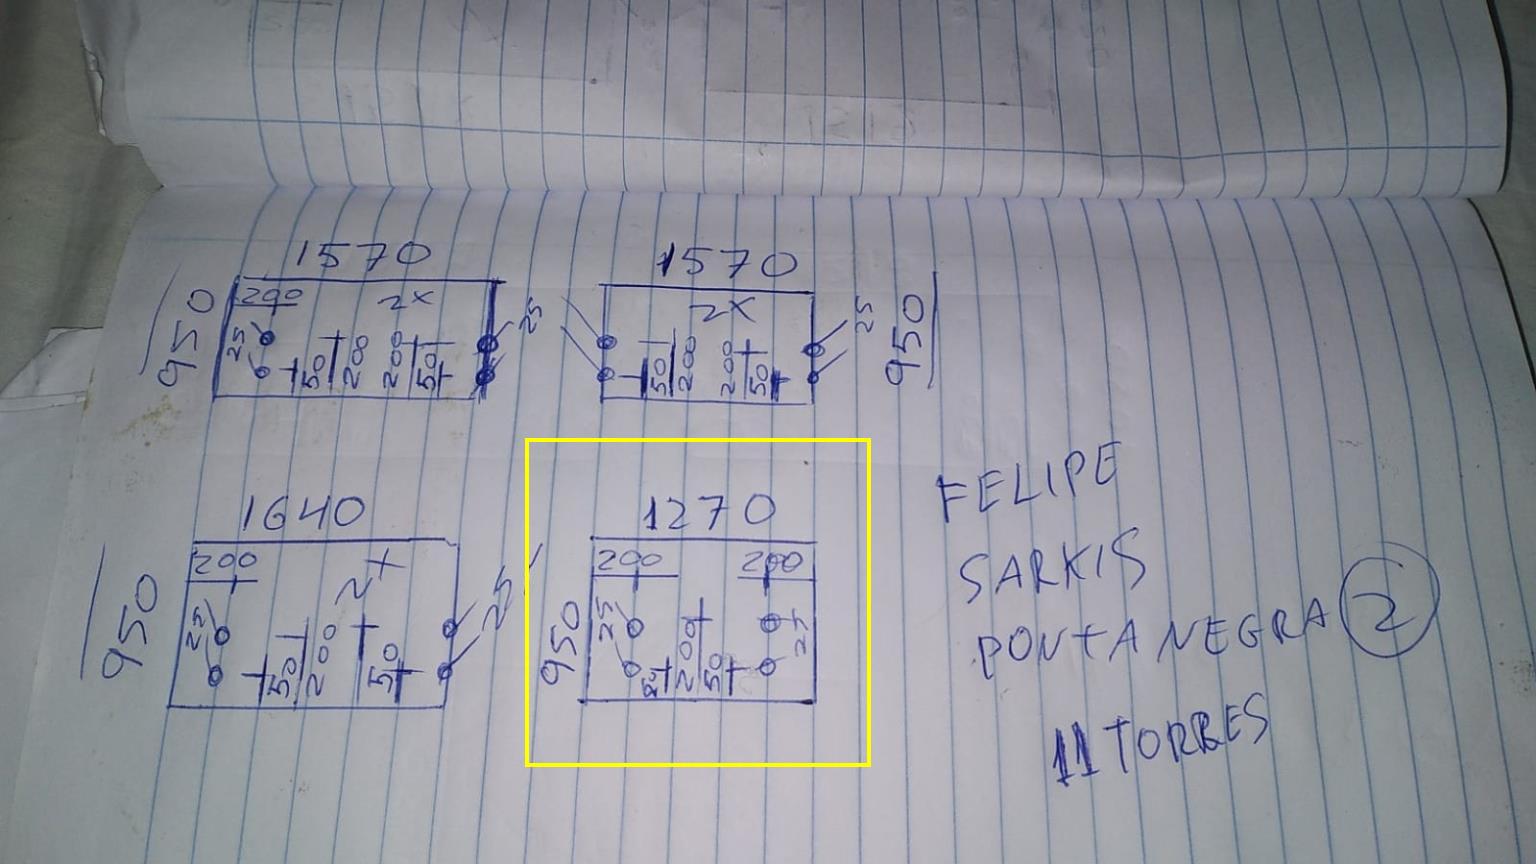 1570
200
2X
950
25
50
200
200
50
25
1570
2X
50
200
200
50
25
950
1640
200
2X
950
25
50
200
50
25
1270
200
200
950
25
50
200
50
25
FELIPE
SARKIS
PONTA NEGRA 2
11 TORRES